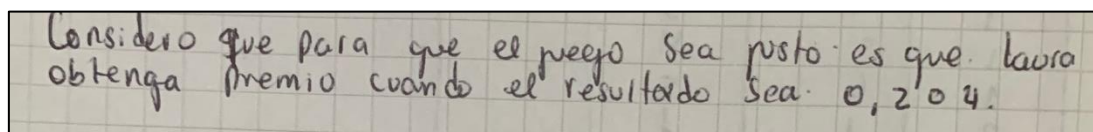 Considero que para que el juego sea justo es que Laura
obtenga premio cuando el resultado sea 0, 2 o 4.